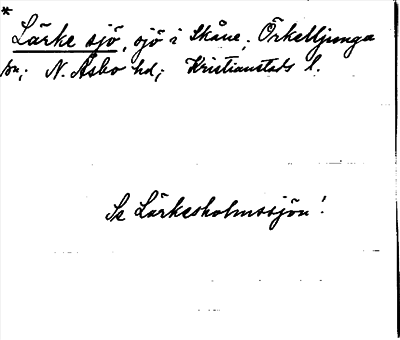 *
Lärke sjö, sjö i Skåne; Örkelljunga
sn; N. Åsbo hd; Kristianstads l.
Se Lärkesholmssjön!